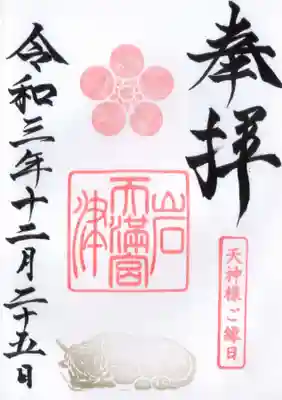 奉拝
天神様ご縁日
岩津天満宮
令和三年十二月二十五日